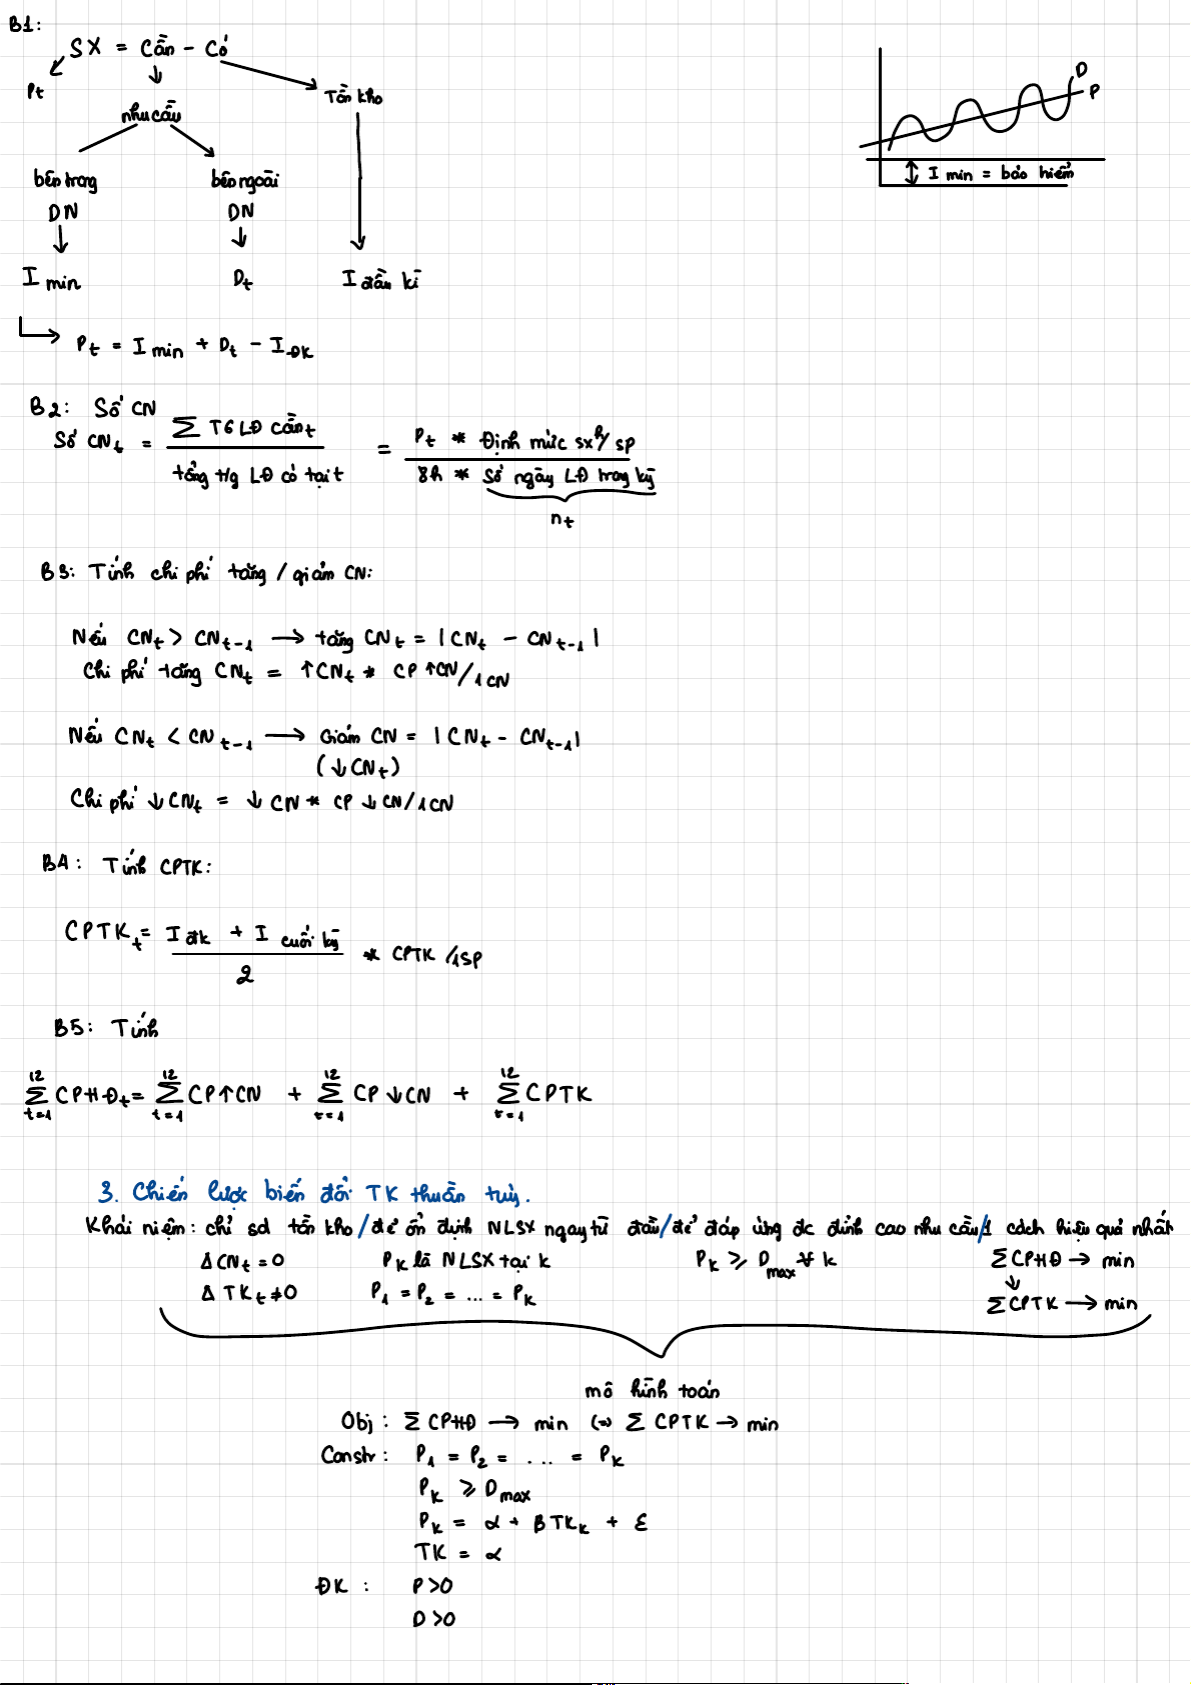 B1:
SX = Cần - Có
Pt
nhu cầu
Tồn kho
D
P
I min = bảo hiểm
bên trong DN
bên ngoài DN
I min
Dt
I đầu kì
Pt = I min + Dt - I ĐK
B2: Số CN
Số CNt = ∑ TG LĐ cần t / tổng t/g LĐ có tại t = Pt * Định mức sx h/sp / 8h * Số ngày LĐ trong kỳ
nt
B3: Tính chi phí tăng / giảm CN:
Nếu CNt > CNt-1 → tăng CNt = |CNt - CNt-1|
Chi phí tăng CNt = ↑CNt * CP ↑CN/1CN
Nếu CNt < CNt-1 → Giảm CN = |CNt - CNt-1|
(↓CNt)
Chi phí ↓CNt = ↓CN * CP ↓CN/1CN
B4: Tính CPTK:
CPTKt = I đk + I cuối kỳ / 2 * CPTK/1SP
B5: Tính
12 ∑ t=1 CPHĐt = 12 ∑ t=1 CP↑CN + 12 ∑ t=1 CP↓CN + 12 ∑ t=1 CPTK
3. Chiến lược biến đổi TK thuần tuý.
Khái niệm: chỉ sd tồn kho / để ổn định NLSX ngay từ đầu / để đáp ứng đc đỉnh cao nhu cầu / 1 cách hiệu quả nhất
ΔCNt = 0 Pk là NLSX tại k Pk ≥ Dmax ∀ k ∑CPHĐ → min
ΔTKt ≠ 0 P1 = P2 = ... = Pk ∑CPTK → min
mô hình toán
Obj: ∑CPHĐ → min (=) ∑CPTK → min
Constr: P1 = P2 = .... = Pk
Pk ≥ Dmax
Pk = α + βTKk + ε
TK = α
ĐK: P>0
D>0